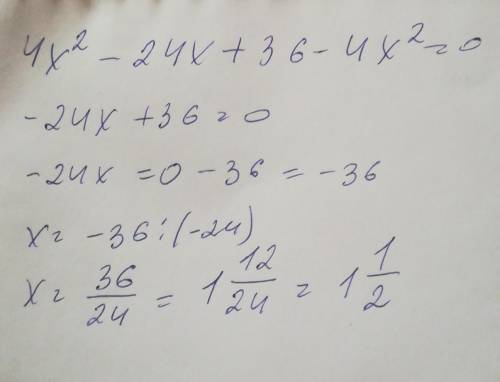 4x² - 24x + 36 - 4x² = 0
-24x + 36 = 0
-24x = 0 - 36 = -36
x = -36 : (-24)
x = 36/24 = 1 12/24 = 1 1/2